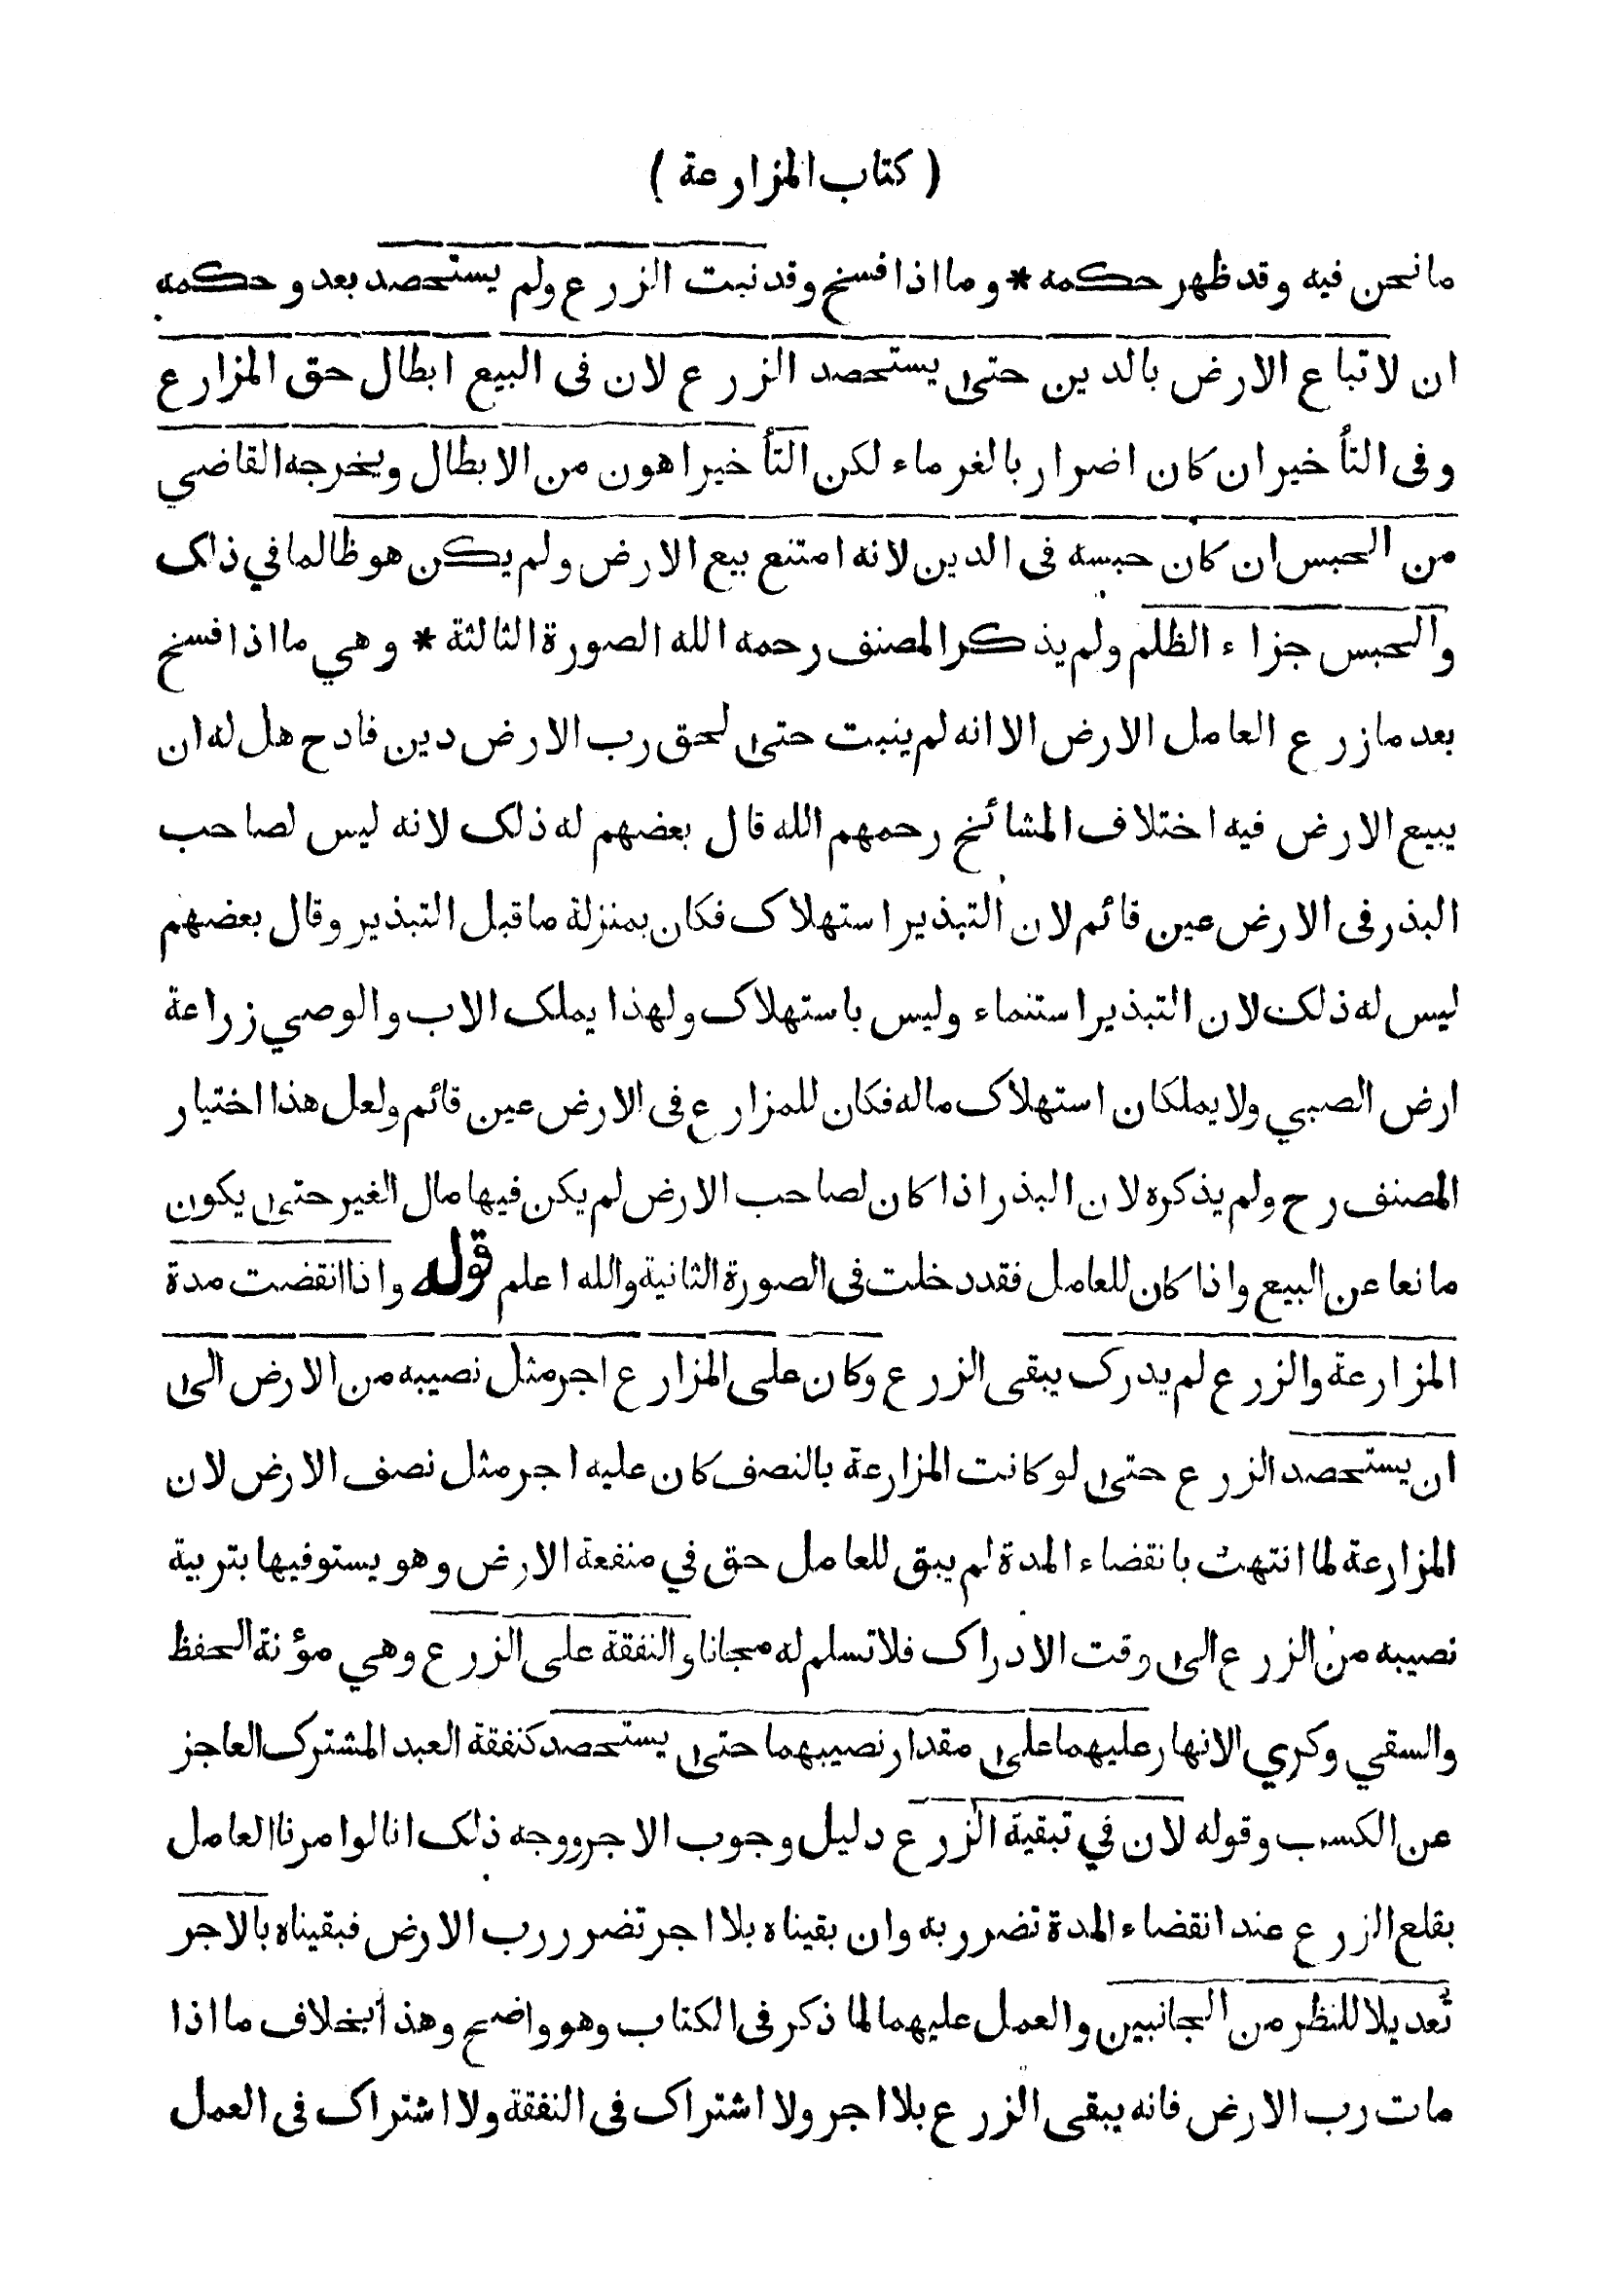 ( كتاب المزارعة )
ما نحن فيه وقد ظهر حكمه * وما اذا فسخ وقد نبت الزرع ولم يستحصد بعد وحكمه
ان لا تباع الارض بالدين حتى يستحصد الزرع لان فى البيع ابطال حق المزارع
وفى التأخير ان كان اضرار بالغرماء لكن التأخير اهون من الابطال ويخرجه القاضي
من الحبس ان كان حبسه فى الدين لانه امتنع بيع الارض ولم يكن هو ظالما في ذلك
والحبس جزاء الظلم ولم يذكر المصنف رحمه الله الصورة الثالثة * وهي ما اذا فسخ
بعد ما زرع العامل الارض الا انه لم ينبت حتى لحق رب الارض دين فادح هل له ان
يبيع الارض فيه اختلاف المشائخ رحمهم الله قال بعضهم له ذلك لانه ليس لصاحب
البذر فى الارض عين قائم لان التبذير استهلاك فكان بمنزلة ما قبل التبذير وقال بعضهم
ليس له ذلك لان التبذير استنماء وليس باستهلاك ولهذا يملك الاب والوصي زراعة
ارض الصبي ولا يملكان استهلاك ماله فكان للمزارع فى الارض عين قائم ولعل هذا اختيار
المصنف رح ولم يذكره لان البذر اذا كان لصاحب الارض لم يكن فيها مال الغير حتى يكون
مانعا عن البيع واذا كان للعامل فقد دخلت فى الصورة الثانية والله اعلم قوله واذا انقضت مدة
المزارعة والزرع لم يدرك يبقى الزرع وكان على المزارع اجر مثل نصيبه من الارض الى
ان يستحصد الزرع حتى لو كانت المزارعة بالنصف كان عليه اجر مثل نصف الارض لان
المزارعة لما انتهت بانقضاء المدة لم يبق للعامل حق في منفعة الارض وهو يستوفيها بتربية
نصيبه من الزرع الى وقت الادراك فلا تسلم له مجانا والنفقة على الزرع وهي مؤنة الحفظ
والسقي وكري الانهار عليهما على مقدار نصيبهما حتى يستحصد كنفقة العبد المشترك العاجز
عن الكسب وقوله لان في تبقية الزرع دليل وجوب الاجر ووجه ذلك انا لو امرنا العامل
بقلع الزرع عند انقضاء المدة تضرر به وان بقيناه بلا اجر تضرر رب الارض فبقيناه بالاجر
تعديلا للنظر من الجانبين والعمل عليهما لما ذكر فى الكتاب وهو واضح وهذا بخلاف ما اذا
مات رب الارض فانه يبقى الزرع بلا اجر ولا اشتراك فى النفقة ولا اشتراك فى العمل